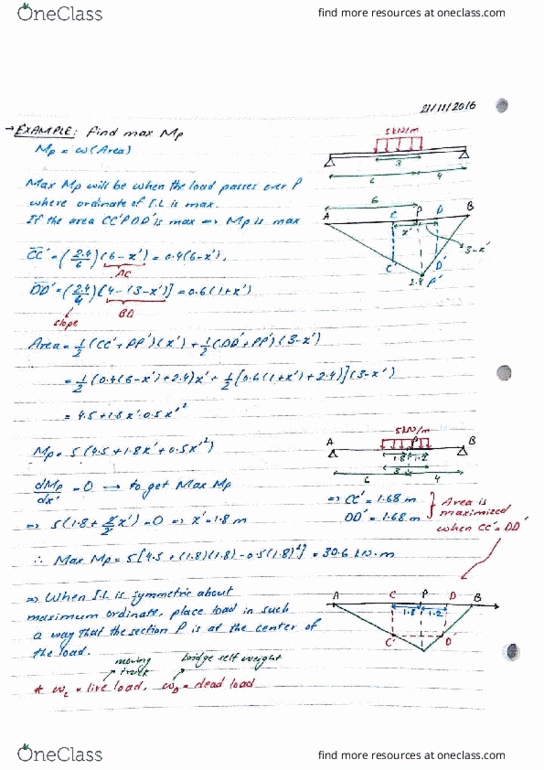 OneClass
find more resources at oneclass.com
21/11/2016
→ EXAMPLE: Find max Mp
Mp = ω(Area)
5kN/m
3
6
4
Max Mp will be when the load passes over P
where ordinate of I.L is max.
If the area CC'P'DD' is max ⇒ Mp is max
6
A
C
P
D
B
x'
3-x'
C'
D'
2.4 P'
CC' = (2.4/6)(6-x') = 0.4(6-x'),
AC
DD' = (2.4/4)[4-(3-x')] = 0.6(1+x')
slope
BD
Area = 1/2 (CC'+PP')(x') + 1/2 (DD'+PP')(3-x')
= 1/2 (0.4(6-x')+2.4)x' + 1/2 [0.6(1+x')+2.4)](3-x')
= 4.5+1.8x'-0.5x'²
5kN/m
A
P
B
1.8
1.2
3
6
4
Mp = 5(4.5+1.8x'+0.5x'²)
dMp/dx' = 0 → to get Max Mp
⇒ CC' = 1.68 m
DD' = 1.68 m
Area is
maximized
when CC' = DD'
⇒ 5(1.8+2/2x') = 0 ⇒ x' = 1.8 m
∴ Max Mp = 5[4.5+(1.8)(1.8)-0.5(1.8)²] = 30.6 kN.m
⇒ When I.L is symmetric about
maximum ordinate, place load in such
a way that the section P is at the center of
the load.
A
C
P
D
B
1.8
1.2
C'
D'
moving
truck
bridge self weight
* ωL = live load, ωD = dead load
OneClass
find more resources at oneclass.com